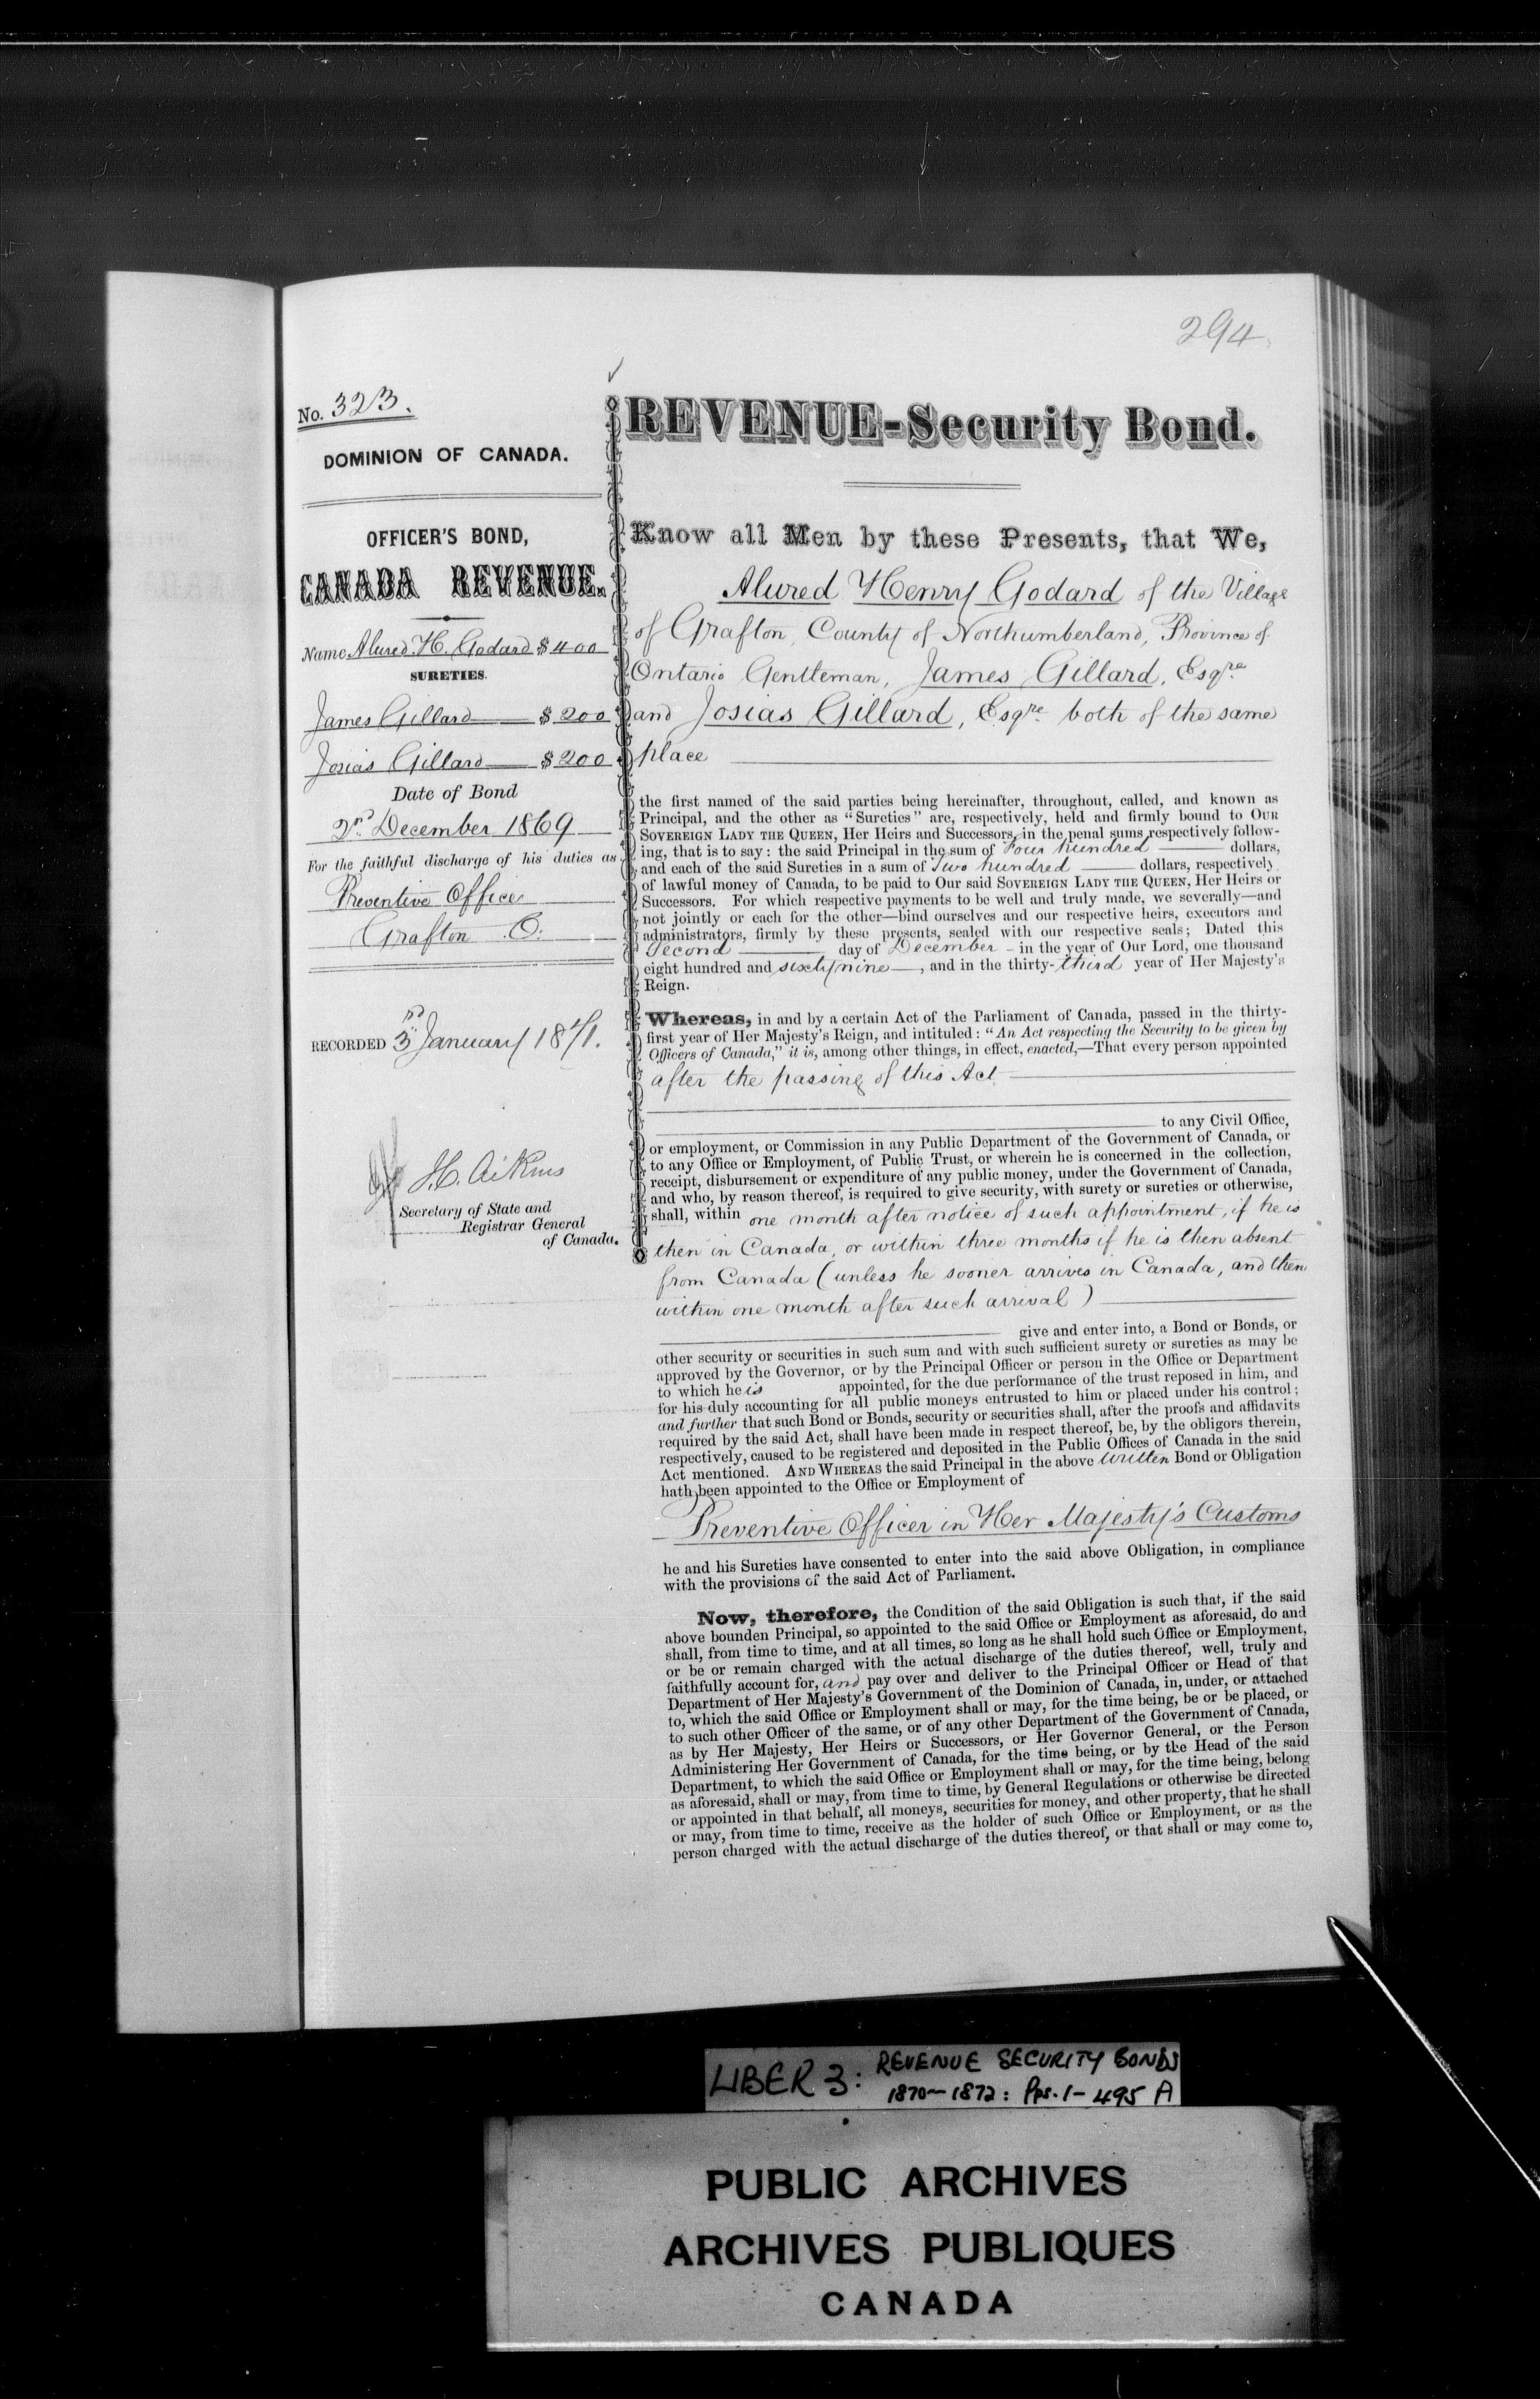 294
No. 323.
DOMINION OF CANADA.
OFFICER'S BOND,
CANADA REVENUE.
Name Alured. H. Godard $400
SURETIES.
James Gillard $200
Josias Gillard $200
Date of Bond
2nd December 1869
For the faithful discharge of his duties as
Preventive Officer
Grafton O.
RECORDED 3rd January 1871.
J.C. Aikins
Secretary of State and
Registrar General
of Canada.
REVENUE-Security Bond.
Know all Men by these Presents, that We,
Alured Henry Godard of the Village
of Grafton, County of Northumberland, Province of
Ontario Gentleman, James Gillard, Esqre
and Josias Gillard, Esqre both of the same
place
the first named of the said parties being hereinafter, throughout, called, and known as
Principal, and the other as "Sureties" are, respectively, held and firmly bound to OUR
SOVEREIGN LADY THE QUEEN, Her Heirs and Successors, in the penal sums respectively follow-
ing, that is to say: the said Principal in the sum of Four hundred dollars,
and each of the said Sureties in a sum of Two hundred dollars, respectively
of lawful money of Canada, to be paid to Our said SOVEREIGN LADY THE QUEEN, Her Heirs or
Successors. For which respective payments to be well and truly made, we severally—and
not jointly or each for the other—bind ourselves and our respective heirs, executors and
administrators, firmly by these presents, sealed with our respective seals; Dated this
Second day of December - in the year of Our Lord, one thousand
eight hundred and sixty nine —, and in the thirty-third year of Her Majesty's
Reign.
Whereas, in and by a certain Act of the Parliament of Canada, passed in the thirty-
first year of Her Majesty's Reign, and intituled: "An Act respecting the Security to be given by
Officers of Canada," it is, among other things, in effect, enacted,—That every person appointed
after the passing of this Act
to any Civil Office,
or employment, or Commission in any Public Department of the Government of Canada, or
to any Office or Employment, of Public Trust, or wherein he is concerned in the collection,
receipt, disbursement or expenditure of any public money, under the Government of Canada,
and who, by reason thereof, is required to give security, with surety or sureties or otherwise,
shall, within one month after notice of such appointment, if he is
then in Canada, or within three months if he is then absent
from Canada (unless he sooner arrives in Canada, and then
within one month after such arrival)
give and enter into, a Bond or Bonds, or
other security or securities in such sum and with such sufficient surety or sureties as may be
approved by the Governor, or by the Principal Officer or person in the Office or Department
to which he is appointed, for the due performance of the trust reposed in him, and
for his duly accounting for all public moneys entrusted to him or placed under his control;
and further that such Bond or Bonds, security or securities shall, after the proofs and affidavits
required by the said Act, shall have been made in respect thereof, be, by the obligors therein,
respectively, caused to be registered and deposited in the Public Offices of Canada in the said
Act mentioned. AND WHEREAS the said Principal in the above written Bond or Obligation
hath been appointed to the Office or Employment of
Preventive Officer in Her Majesty's Customs
he and his Sureties have consented to enter into the said above Obligation, in compliance
with the provisions of the said Act of Parliament.
Now, therefore, the Condition of the said Obligation is such that, if the said
above bounden Principal, so appointed to the said Office or Employment as aforesaid, do and
shall, from time to time, and at all times, so long as he shall hold such Office or Employment,
or be or remain charged with the actual discharge of the duties thereof, well, truly and
faithfully account for, and pay over and deliver to the Principal Officer or Head of that
Department of Her Majesty's Government of the Dominion of Canada, in, under, or attached
to, which the said Office or Employment shall or may, for the time being, be or be placed, or
to such other Officer of the same, or of any other Department of the Government of Canada,
as by Her Majesty, Her Heirs or Successors, or Her Governor General, or the Person
Administering Her Government of Canada, for the time being, or by the Head of the said
Department, to which the said Office or Employment shall or may, for the time being, belong
as aforesaid, shall or may, from time to time, by General Regulations or otherwise be directed
or appointed in that behalf, all moneys, securities for money, and other property, that he shall
or may, from time to time, receive as the holder of such Office or Employment, or as the
person charged with the actual discharge of the duties thereof, or that shall or may come to,
LIBER 3: REVENUE SECURITY BONDS
1870-1872: Pps. 1-495 A
PUBLIC ARCHIVES
ARCHIVES PUBLIQUES
CANADA